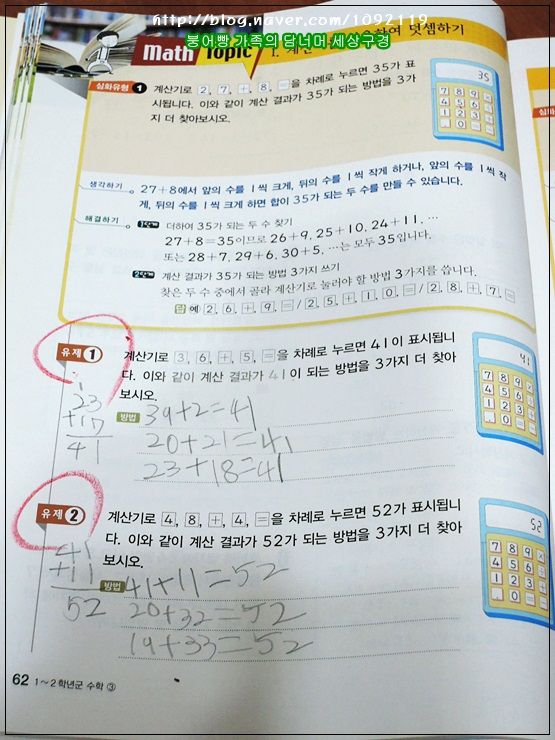 http://blog.naver.com/1092119
붕어빵 가족의 담너머 세상구경
Math Topic 1. 계산 하여 덧셈하기
심화유형 1 계산기로 2, 7, +, 8, =을 차례로 누르면 35가 표
시됩니다. 이와 같이 계산 결과가 35가 되는 방법을 3가
지 더 찾아보시오.
35
7 8 9 ×
4 5 6 ÷
1 2 3 +
. 0 - =
생각하기 27+8에서 앞의 수를 1씩 크게, 뒤의 수를 1씩 작게 하거나, 앞의 수를 1씩 작
게, 뒤의 수를 1씩 크게 하면 합이 35가 되는 두 수를 만들 수 있습니다.
해결하기 1단계 더하여 35가 되는 두 수 찾기
27+8=35이므로 26+9, 25+10, 24+11, …
또는 28+7, 29+6, 30+5, …는 모두 35입니다.
2단계 계산 결과가 35가 되는 방법 3가지 쓰기
찾은 두 수 중에서 골라 계산기로 눌러야 할 방법 3가지를 씁니다.
답 예 2, 6, +, 9, = / 2, 5, +, 1, 0, = / 2, 8, +, 7, =
유제 1 계산기로 3, 6, +, 5, =을 차례로 누르면 41이 표시됩니
다. 이와 같이 계산 결과가 41이 되는 방법을 3가지 더 찾아
보시오.
41
7 8 9 ×
4 5 6 ÷
1 2 3 +
. 0 - =
1
23
+17
41
방법 39+2=41
20+21=41
23+18=41
유제 2 계산기로 4, 8, +, 4, =을 차례로 누르면 52가 표시됩니
다. 이와 같이 계산 결과가 52가 되는 방법을 3가지 더 찾아
보시오.
52
7 8 9 ×
4 5 6 ÷
1 2 3 +
. 0 - =
41
+11
52
방법 41+11=52
20+32=52
19+33=52
62 1~2학년군 수학 ③